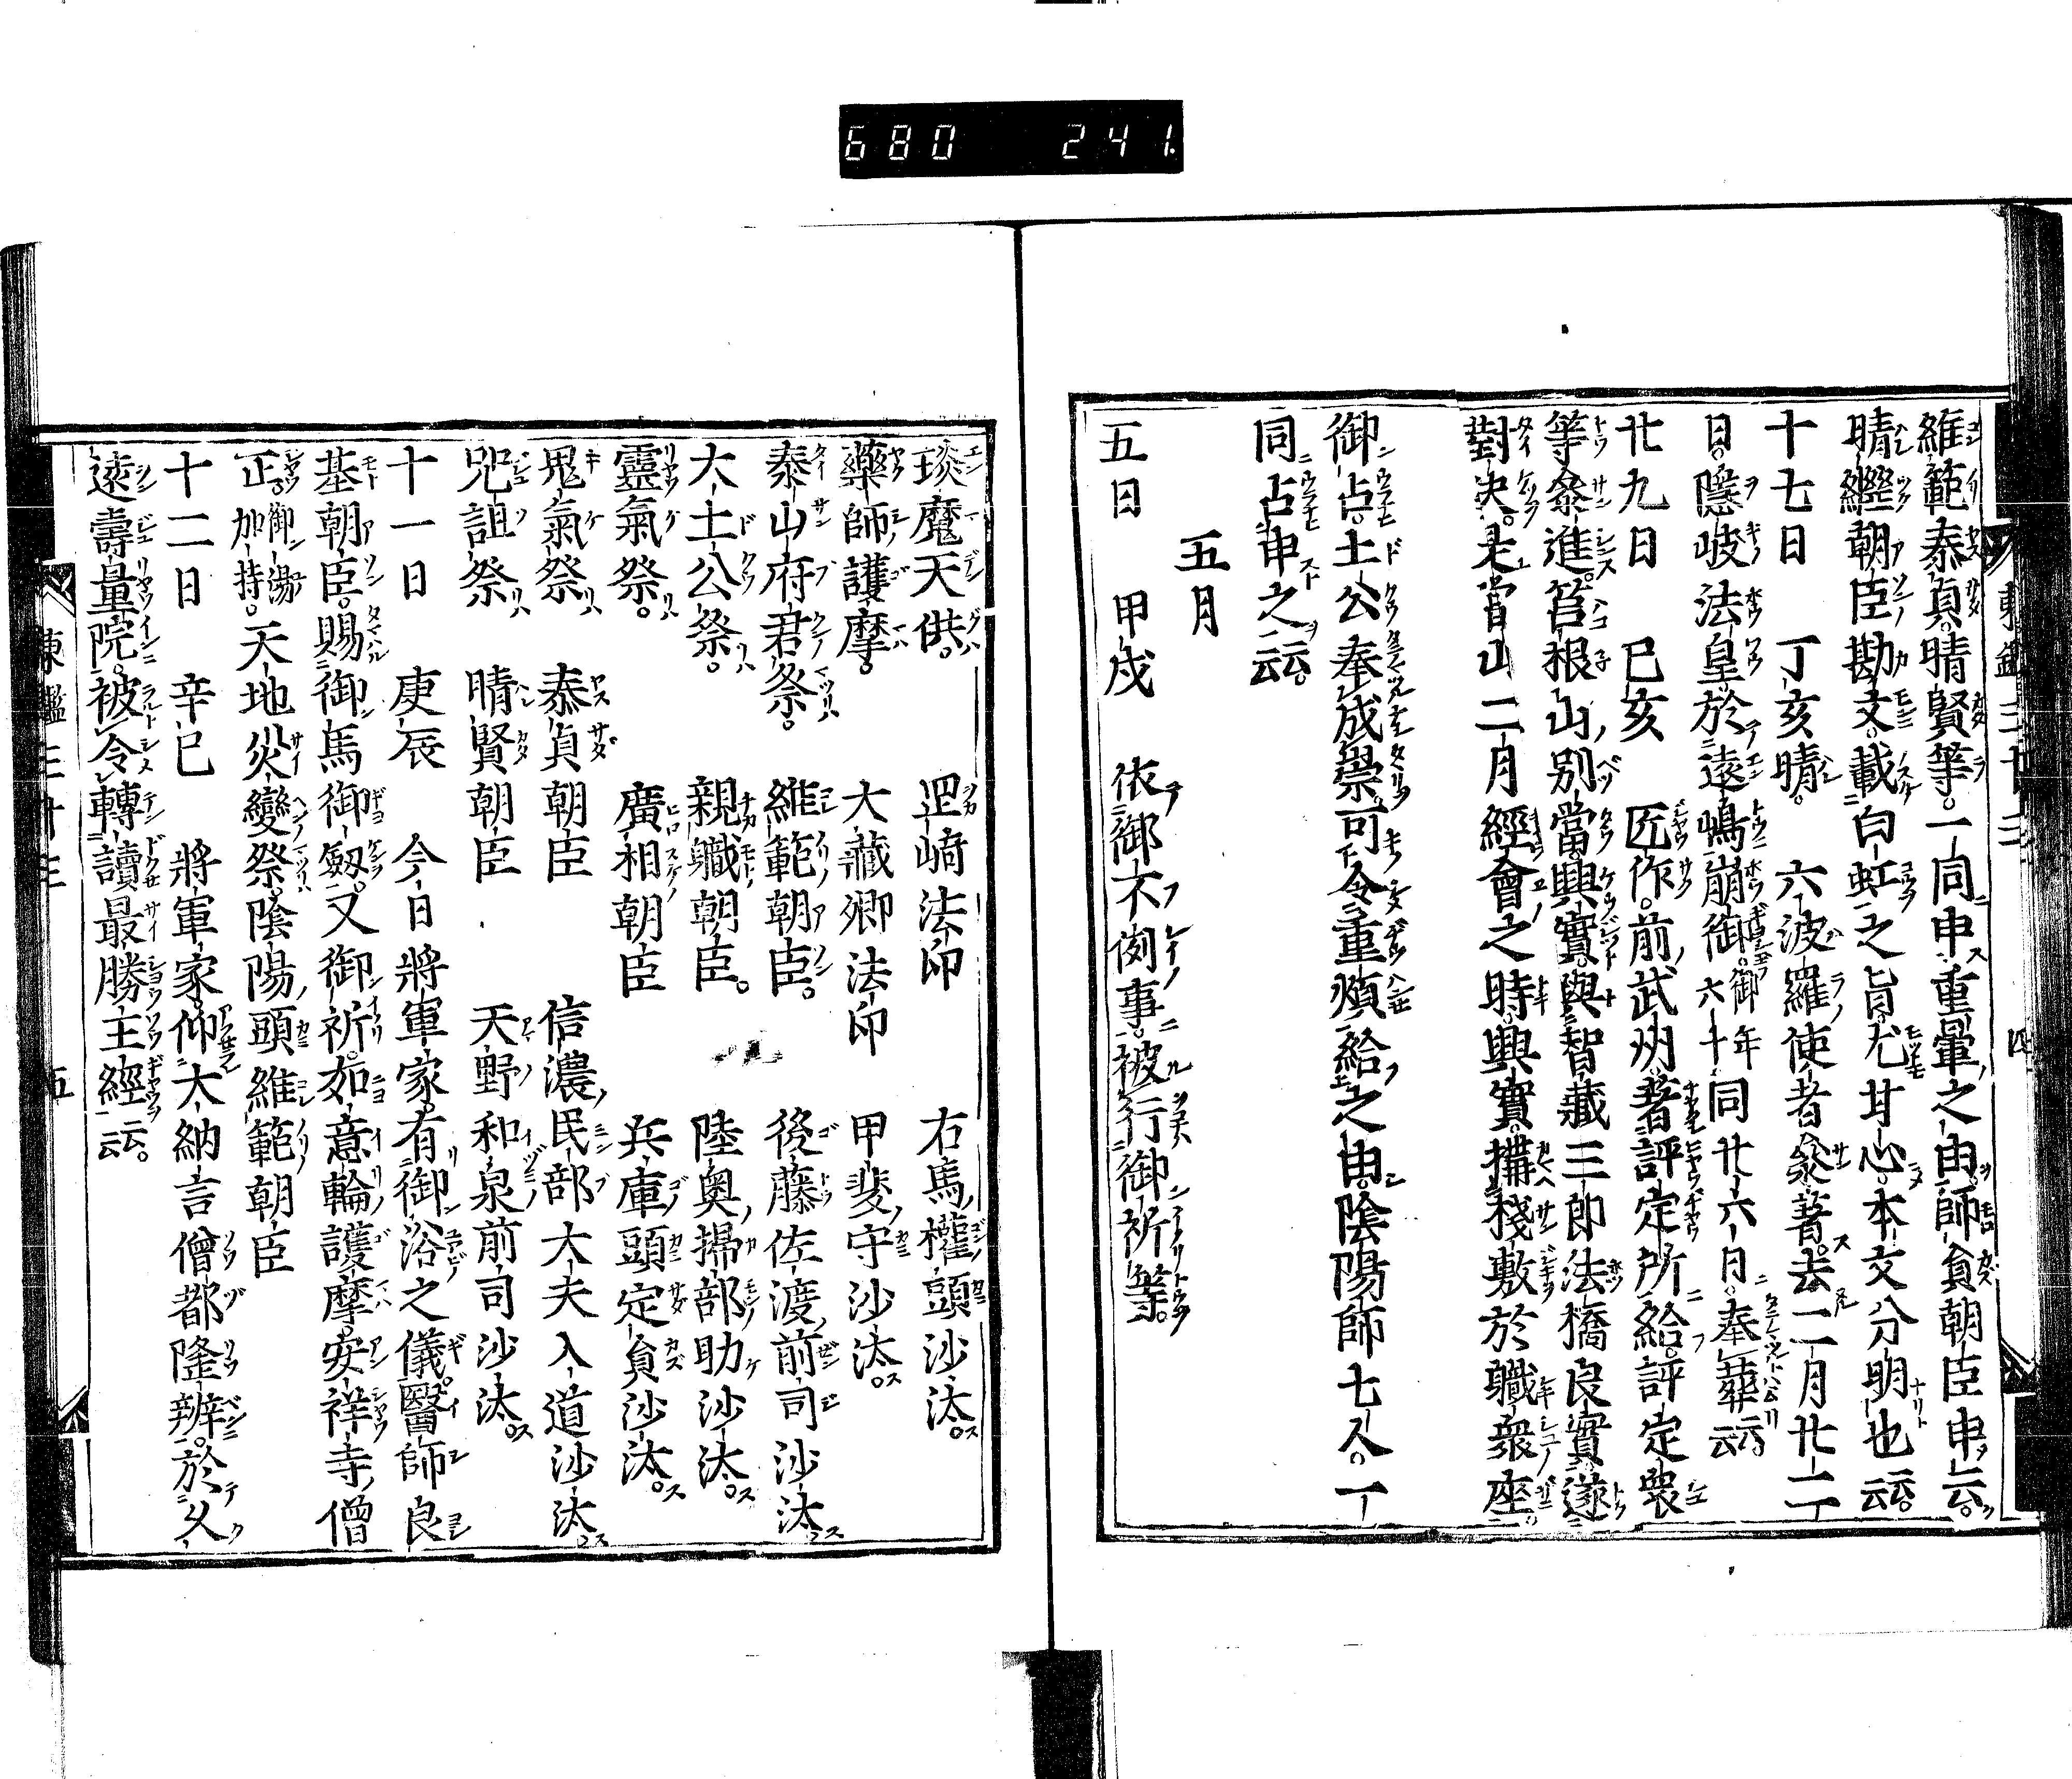 680 241
維範泰貞晴賢等一同申重暈之由師貟朝臣申云
晴繼朝臣勘文載白虹之旨尤甘心本文分明也云云
十七日 丁亥晴 六波羅使者叅著去二月廿二
日隱岐法皇於遠嶋崩御御年六十同廿六日奉葬云云
廿九日 巳亥 匠作前武州著評定所給評定衆
等叅進筥根山別當興實與智藏三郎法橋良實遂
對决是當山二月經會之時興實搆棧敷於職衆座
御占土公奉成祟可令重煩給之由陰陽師七人一
同占申之云云
五月
五日 甲戌 依御不例事被行御祈等
東鑑三十三 四
琰魔天供 𦊆﨑法印 右馬權頭沙汰
藥師護摩 大藏卿法印 甲斐守沙汰
泰山府君祭 維範朝臣 後藤佐渡前司沙汰
大土公祭 親職朝臣 陸奥掃部助沙汰
靈氣祭 廣相朝臣 兵庫頭定貟沙汰
鬼氣祭 泰貞朝臣 信濃民部大夫入道沙汰
咒詛祭 晴賢朝臣 天野和泉前司沙汰
十一日 庚辰 今日將軍家有御浴之儀醫師良
基朝臣賜御馬御釼又御祈如意輪護摩安祥寺僧
正御湯加持天地災變祭陰陽頭維範朝臣
十二日 辛巳 將軍家仰大納言僧都隆辨於久
遠壽量院被令轉讀最勝王經云云
東鑑三十三 五